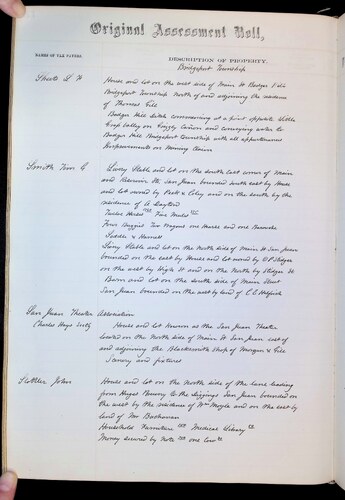 Original Assessment Roll,
NAMES OF TAX PAYERS.
DESCRIPTION OF PROPERTY.
Bridgeport Township
House and lot on the west side of Main St Badger Hill
Bridgeport Township North of and adjoining the residence
of Thomas Gill
Badger Hill Ditch commencing at a point opposite
on Grizzly Cañon and conveying water to
Badger Hill Bridgeport Township with all appurtenances
Improvements on Mining Claim
Smith G
Livery Stable and lot on the south east corner of Main
and Reservoir Sts San Juan bounded north east by House
and lot owned by Peck & Coley and on the south by the
residence of A
Twelve Horses Four Mules
Four Buggies Two Wagons one Hearse and one Barouche
Saddle & Harness
Livery Stable and lot on the North side of Main St San Juan
bounded on the east by House and lot owned by
on the west by High St and on the North by
Barn and lot on the South side of Main Street
San Juan bounded on the west by land of C E
San Juan Theater Association
Charles Hays Secty
House and lot known as the San Juan Theater
located on the North side of Main St San Juan east of
and adjoining the Blacksmith Shop of Morgan & Gill
Scenery and fixtures
John
House and lot on the North side of the lane leading
from to the Diggings San Juan bounded on
the west by the residence of Wm Moyle and on the east by
land of Mr
Household Furniture Medical Library
Money secured by note one cow